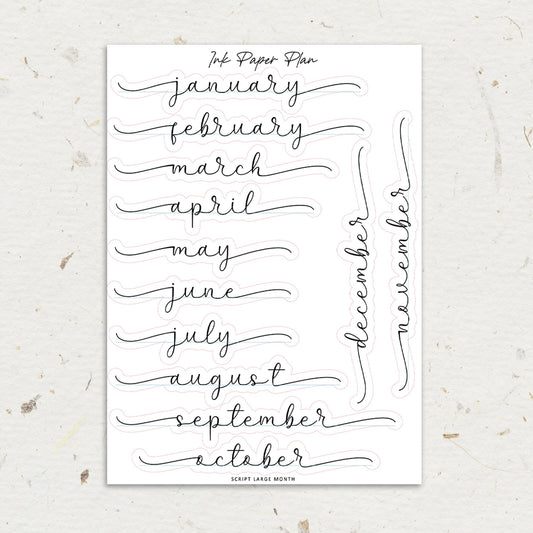 Ink Paper Plan
january
february
march
april
may
june
july
august
september
october
december
november
SCRIPT LARGE MONTH